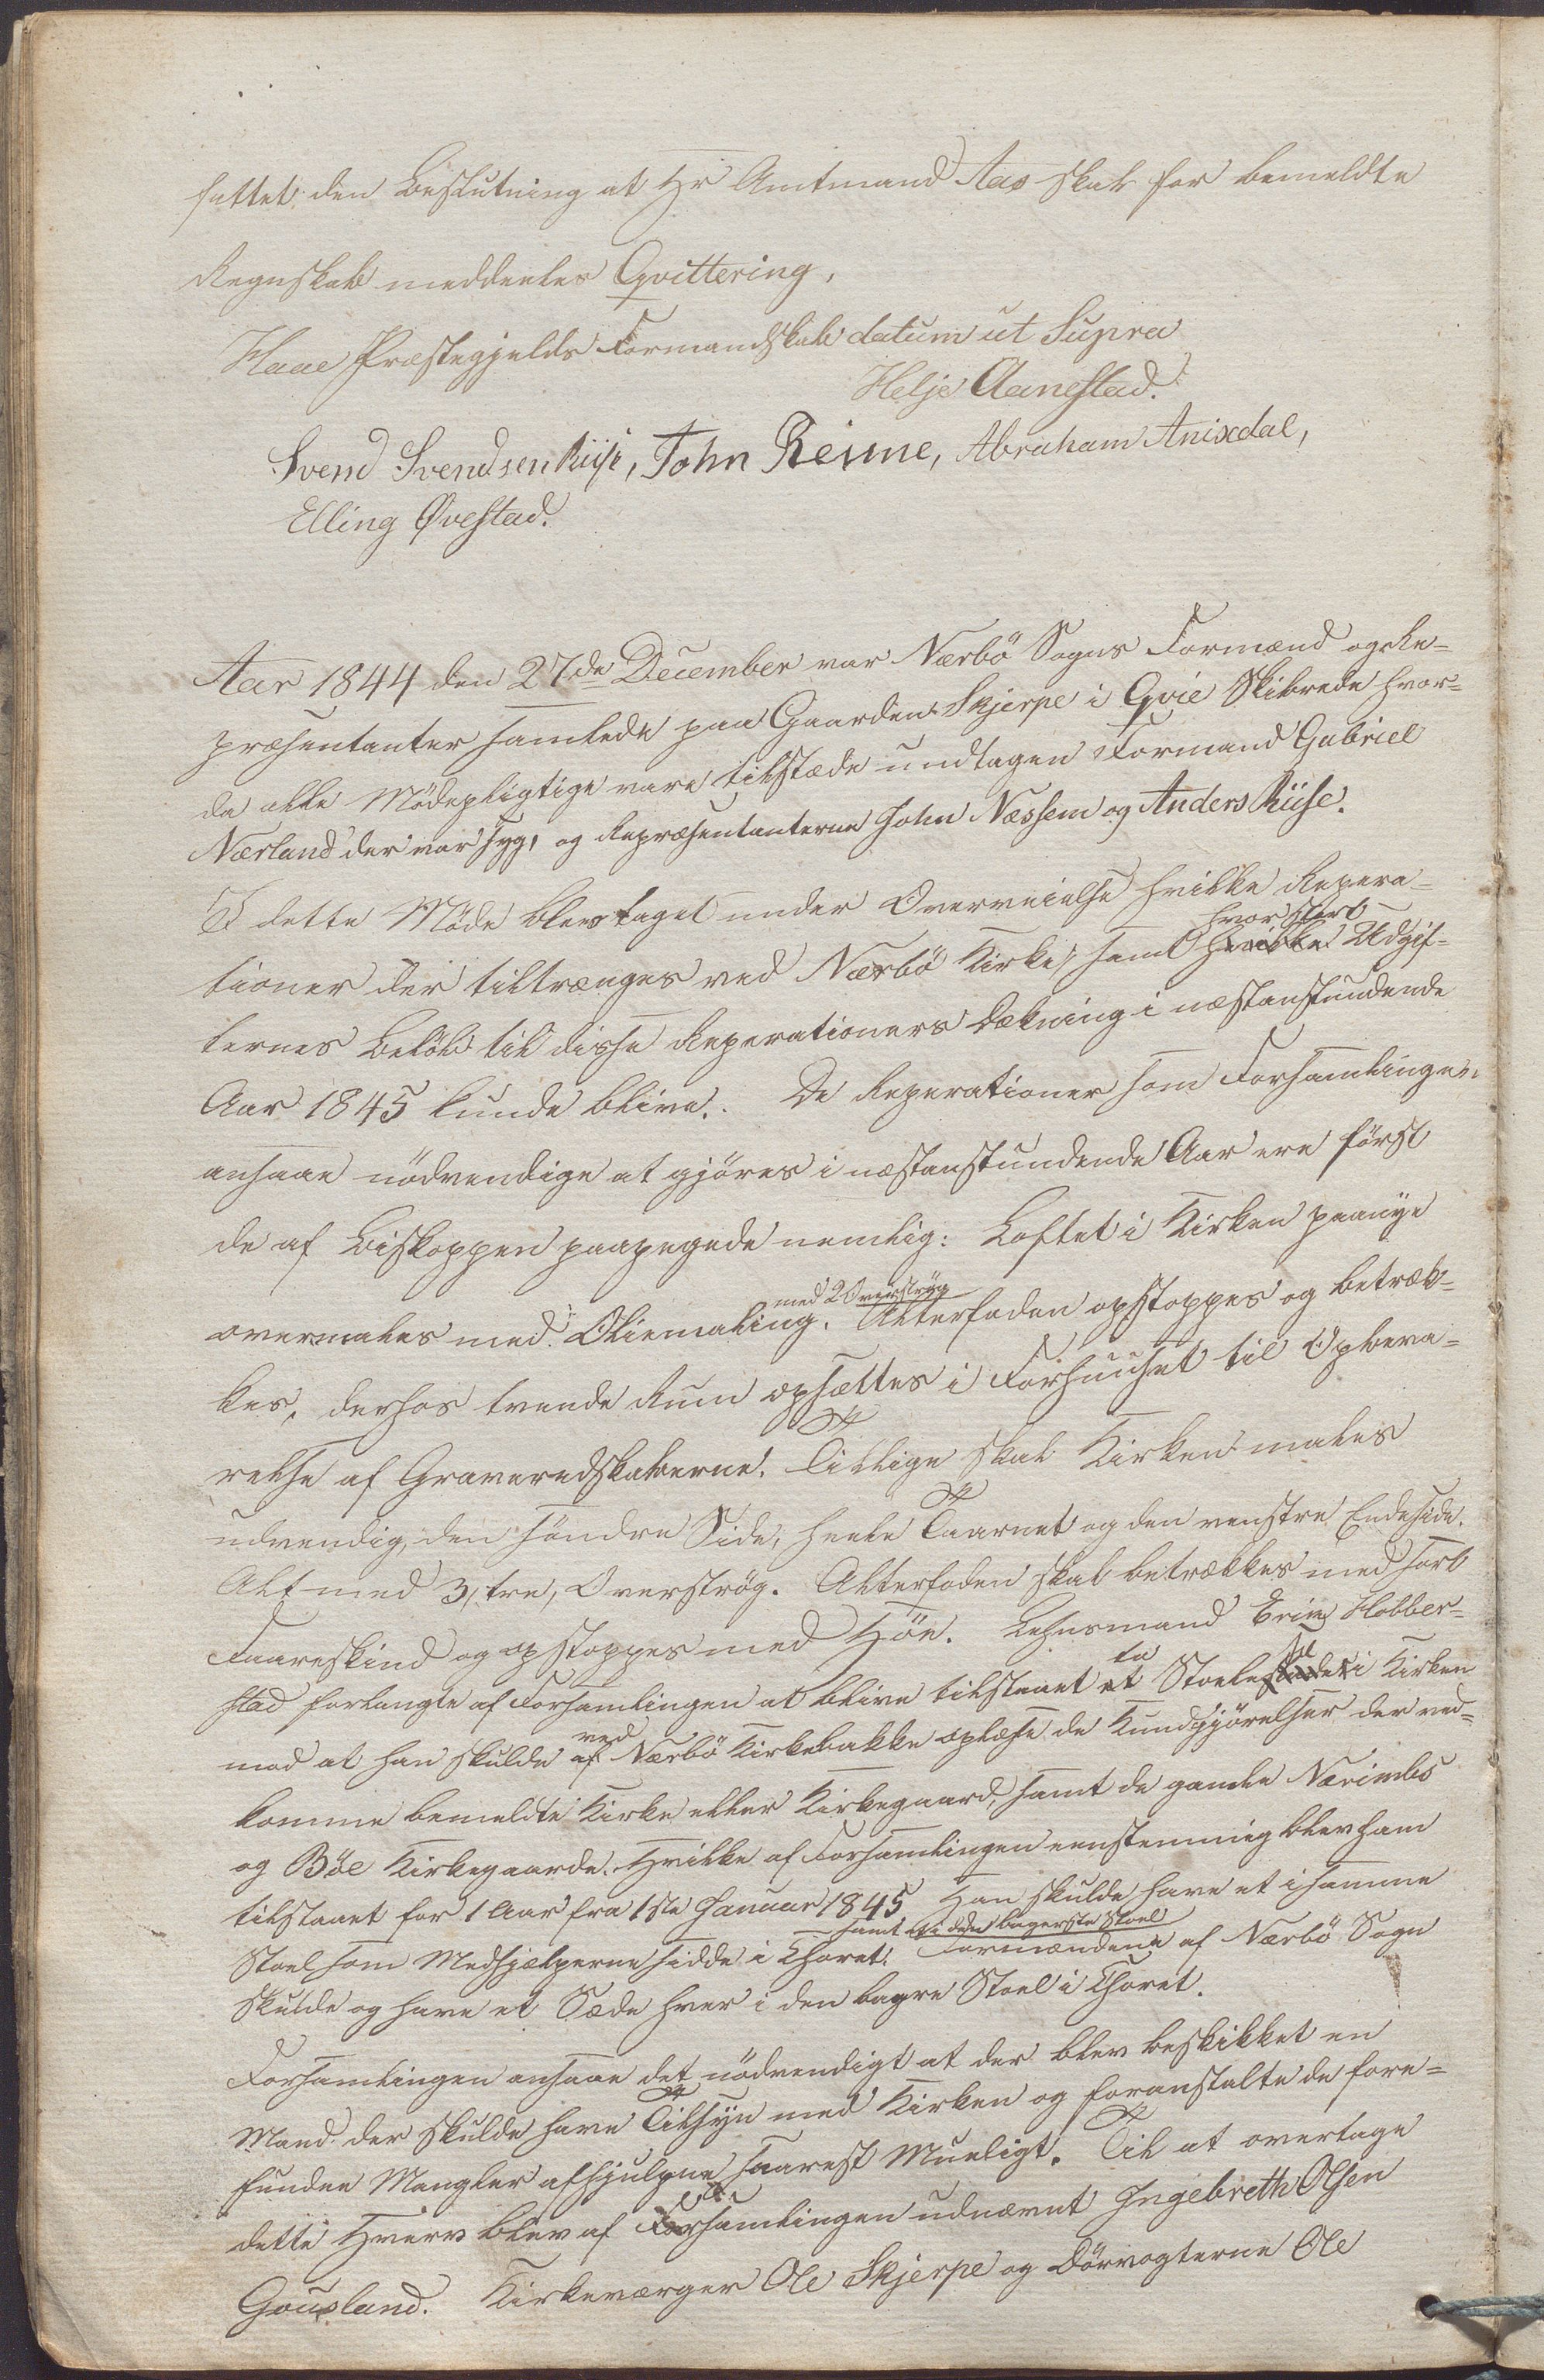 fattet den Beslutning at Hr Amtmand Aas skal for bemeldte
Regnskab meddeeles Qvittering,
Haae Præstegjelds Formandskab datum ut Supra
Helje Aanestad.
Svend Svendsen Riise, John Reime, Abraham Anixdal,
Elling Øvestad.
Aar 1844 den 27de December var Nærbö Sogns Formænd og Re-
præsentanter samlede paa Gaarden Skjerpe i Qvie Skibrede hvor-
da alle Mödepligtige vare tilstæde undtagen Formand Gabriel
Nærland der var syg, og Repræsentanterne John Næssem og Anders Riise.
I dette Möde blev taget under Overveielse hvilke Repera-
hvor stort
tioner der tiltrænges ved Nærbö Kirke, samt hvilke Udgif-
ternes Belöb til disse Reperationers Dækning i næstanstundende
Aar 1845 kunde blive. De Reperationer som Forsamlingen
ansaae nödvendige at gjöres i næstanstundende Aar ere först
de af Biskoppen paapegede nemlig: Loftet i Kirken paanye
med 2 Overströg
overmales med Oliemaling. Alterfoden opstoppes og betræk-
kes, derhos tvende Rum opsættes i Forhuuset til Opbeva-
relse af Graveredskaberne. Tillige skal Kirken males
udvendig, den söndre Side, heele Taarnet og den venstre Endeside.
Alt med 3, tre, Overströg. Alterfoden skal betrækkes med sort
Faareskind og opstoppes med Höe. Lehnsmand Erik Hobber-
to
stad forlangte af Forsamlingen at blive tilstaaet et Stoele i Kirken
ved
mod at han skulde af Nærbö Kirkebakke oplæse de Kundgjörelser der ved-
komme bemeldte Kirke eller Kirkegaard, samt de gamle Nærimbs
og Böe Kirkegaarde. Hvilke af Forsamlingen eenstemmig blev ham
tilstaaet for 1 Aar fra 1ste Januar 1845 Han skulde have et i samme
samt i den bagerste Stoel
Stoel som Medhjælperne sidde i Choret. Formændene af Nærbö Sogn
skulde og have et Sæde hver i den bagre Stoel i Choret.
Forsamlingen ansaae det nödvendigt at der blev beskikket en
Mand der skulde have Tilsyn med Kirken og foranstalte de fore-
fundne Mangler afhjulpne snarest Mueligt. Til at overtage
dette Hverv blev af Forsamlingen udnævnt Ingebreth Olsen
Gousland. Kirkeværger Ole Skjerpe og Dörvogterne Ole